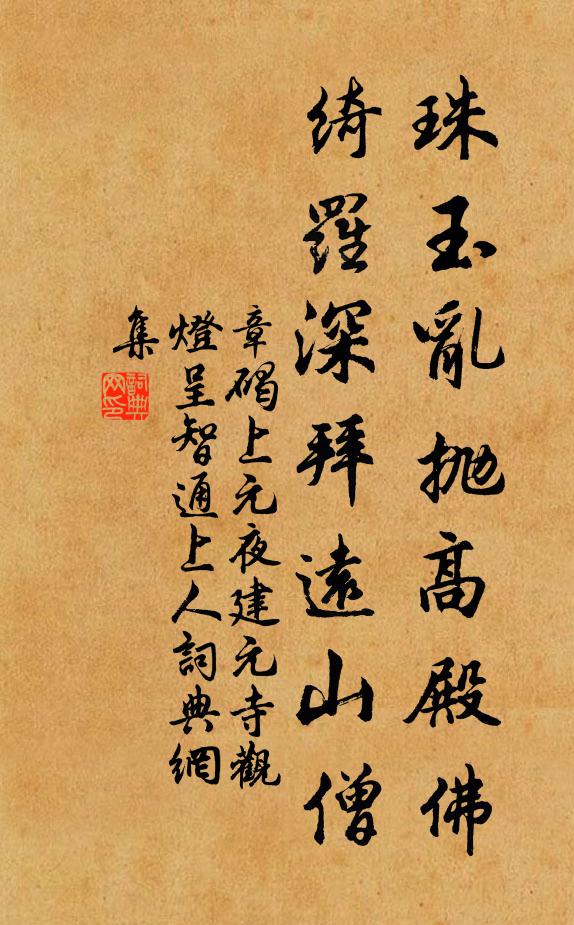 珠玉亂抛高殿佛
綺羅深拜遠山僧
章碣上元夜建元寺觀
燈呈智通上人詞典網
集
詞典
网印